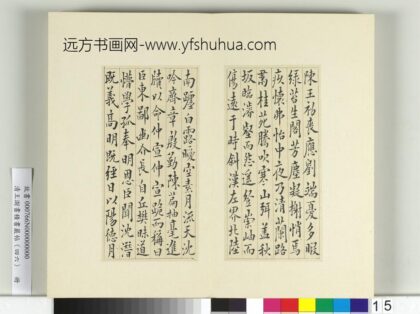 远方书画网-www.yfshuhua.com
陳王初喪應劉端憂多暇
綠苔生閣芳塵凝榭悄焉
疚懷弗怡中夜乃清蘭路
肅桂苑騰吹寒山弭蓋秋
坂臨濬壑而怨遙登崇岫而
傷遠于時斜漢左界北陸
南躔白露曖空素月流天沈
吟齋章殷勤陳篇抽毫進
牘以命仲宣仲宣跪而稱曰
臣東鄙幽介長自丘樊昧道
懵學孤奉明恩臣聞沈潛
既義高明既經日以陽德月
15